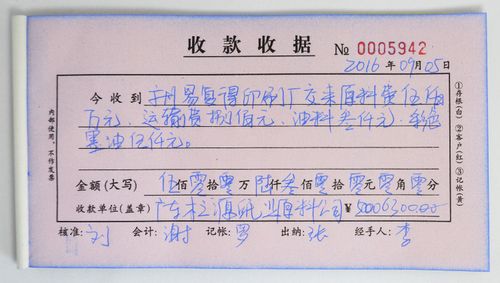 收款收据
№ 0005942
2016年09月05日
今收到 广州易复得印刷厂交来原料费伍佰
万元、运输费捌佰元、油料叁仟元、彩色
墨油伍仟元。
金额(大写) 伍佰零拾零万陆仟叁佰零拾零元零角零分
收款单位(盖章) 广东 源纸业原料公司 ¥
核准:刘 会计:谢 记帐:罗 出纳:张 经手人:李
内部使用,不作发票
①存根(白) ②客户(红) ③记帐(黄)